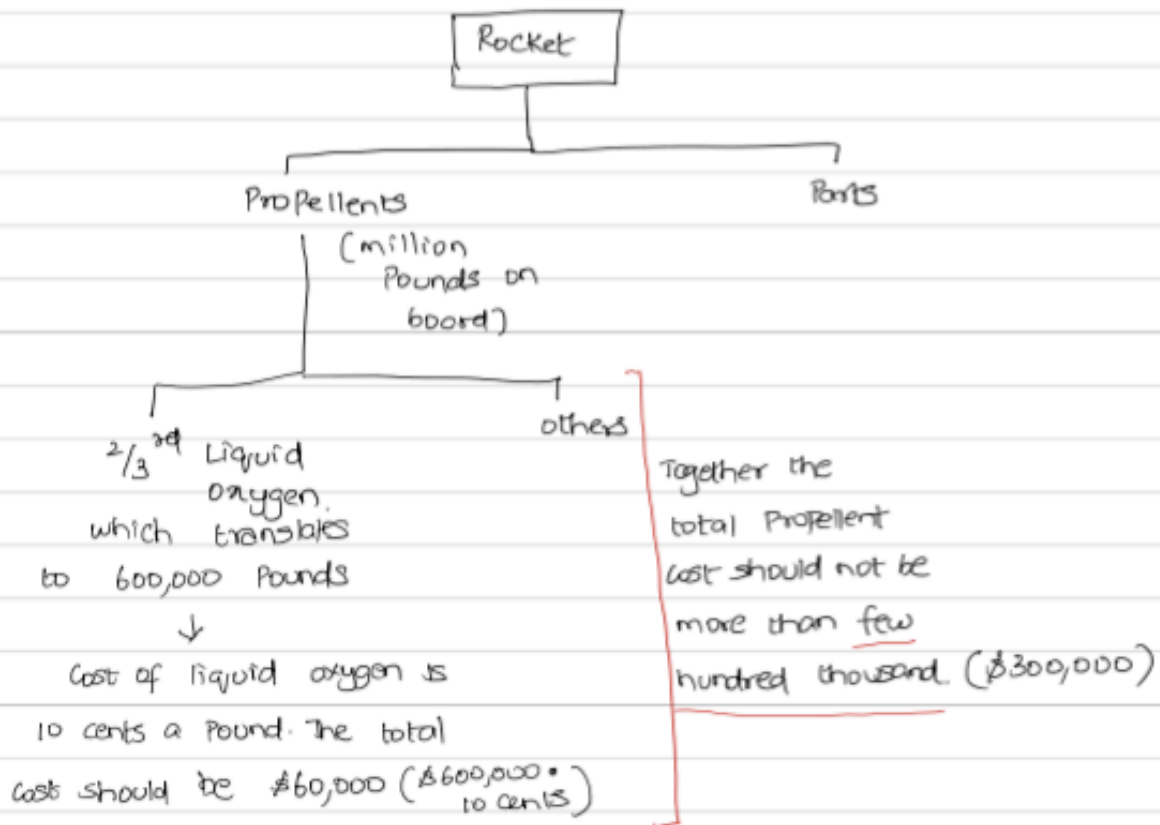 Rocket
Propellents
Parts
(million
Pounds on
board)
2/3rd Liquid
oxygen.
which translates
to 600,000 Pounds
↓
Cost of liquid oxygen is
10 cents a Pound. The total
cost should be $60,000 ($600,000 •
10 cents)
others
Together the
total Propellent
cost should not be
more than few
hundred thousand. ($300,000)